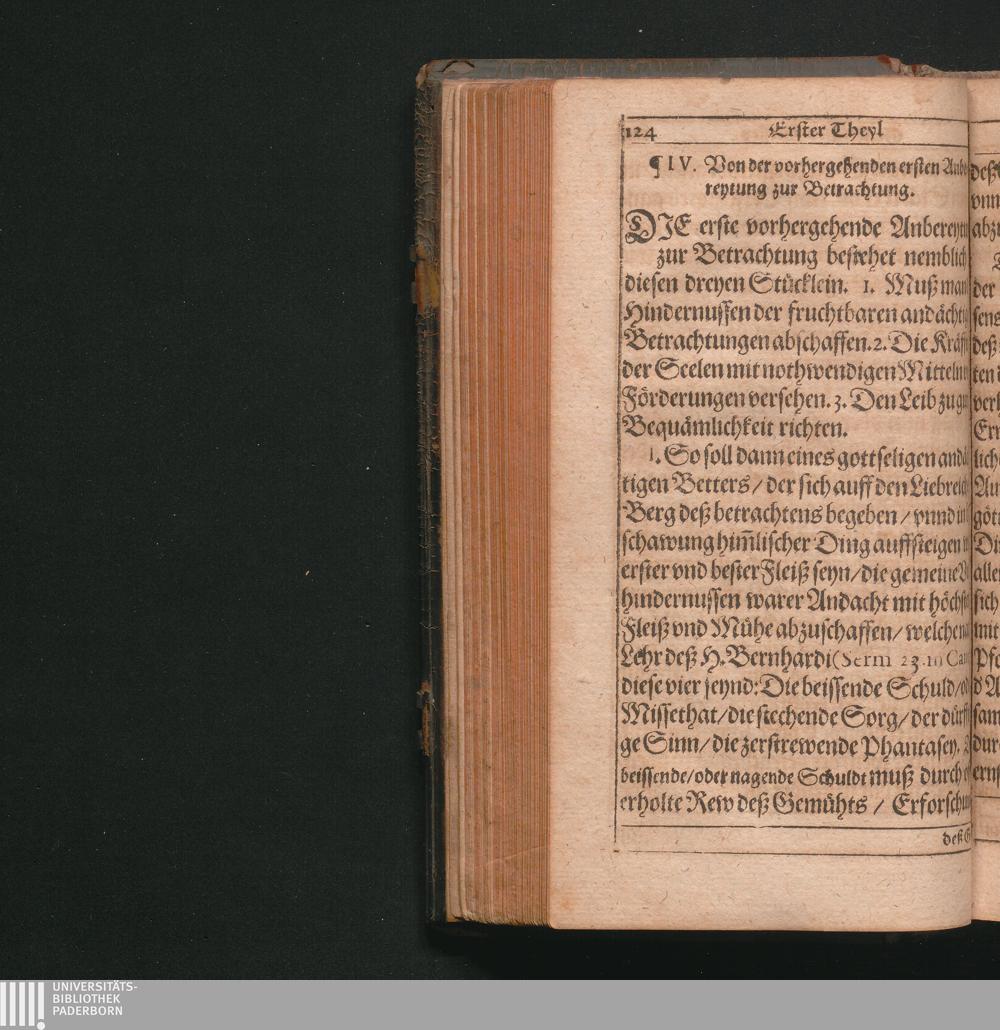 124 Erster Theyl
¶ IV. Von der vorhergehenden ersten
reytung zur Betrachtung.
DIE erste vorhergehende
zur Betrachtung bestehet nemblich
diesen dreyen Stücklein. 1. Muß man
Hindernussen der fruchtbaren
Betrachtungen abschaffen. 2. Die
der Seelen mit nothwendigen Mitteln
Förderungen versehen. 3. Den Leib zu
Bequämlichkeit richten.
1. So soll dann eines gottseligen
tigen Betters / der sich auff den
Berg deß betrachtens begeben / vnnd
schawung him̃lischer Ding auffsteigen
erster vnd bester Fleiß seyn / die gemeine
hindernussen warer Andacht mit
Fleiß vnd Mühe abzuschaffen / welche
Lehr deß H. Bernhardi (Serm 23. in
diese vier seynd: Die beissende Schuld /
Missethat / die stechende Sorg / der
ge Sinn / die zerstrewende Phantasey.
beissende / oder nagende Schuldt muß durch
erholte Rew deß Gemühts /
deß
vnn
abzu
der
sens
deß
ten
Die
alle
sich
mit
sam
durc
ernst
UNIVERSITÄTS-
BIBLIOTHEK
PADERBORN